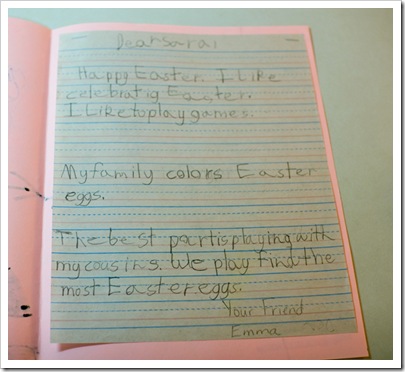 Dear Sarai
Happy Easter. I Like
celebratig Easter.
I Like to play games.
My family colors Easter
eggs.
The best part is playing with
my cousins. We play Find the
most Easter eggs.
Your Friend
Emma